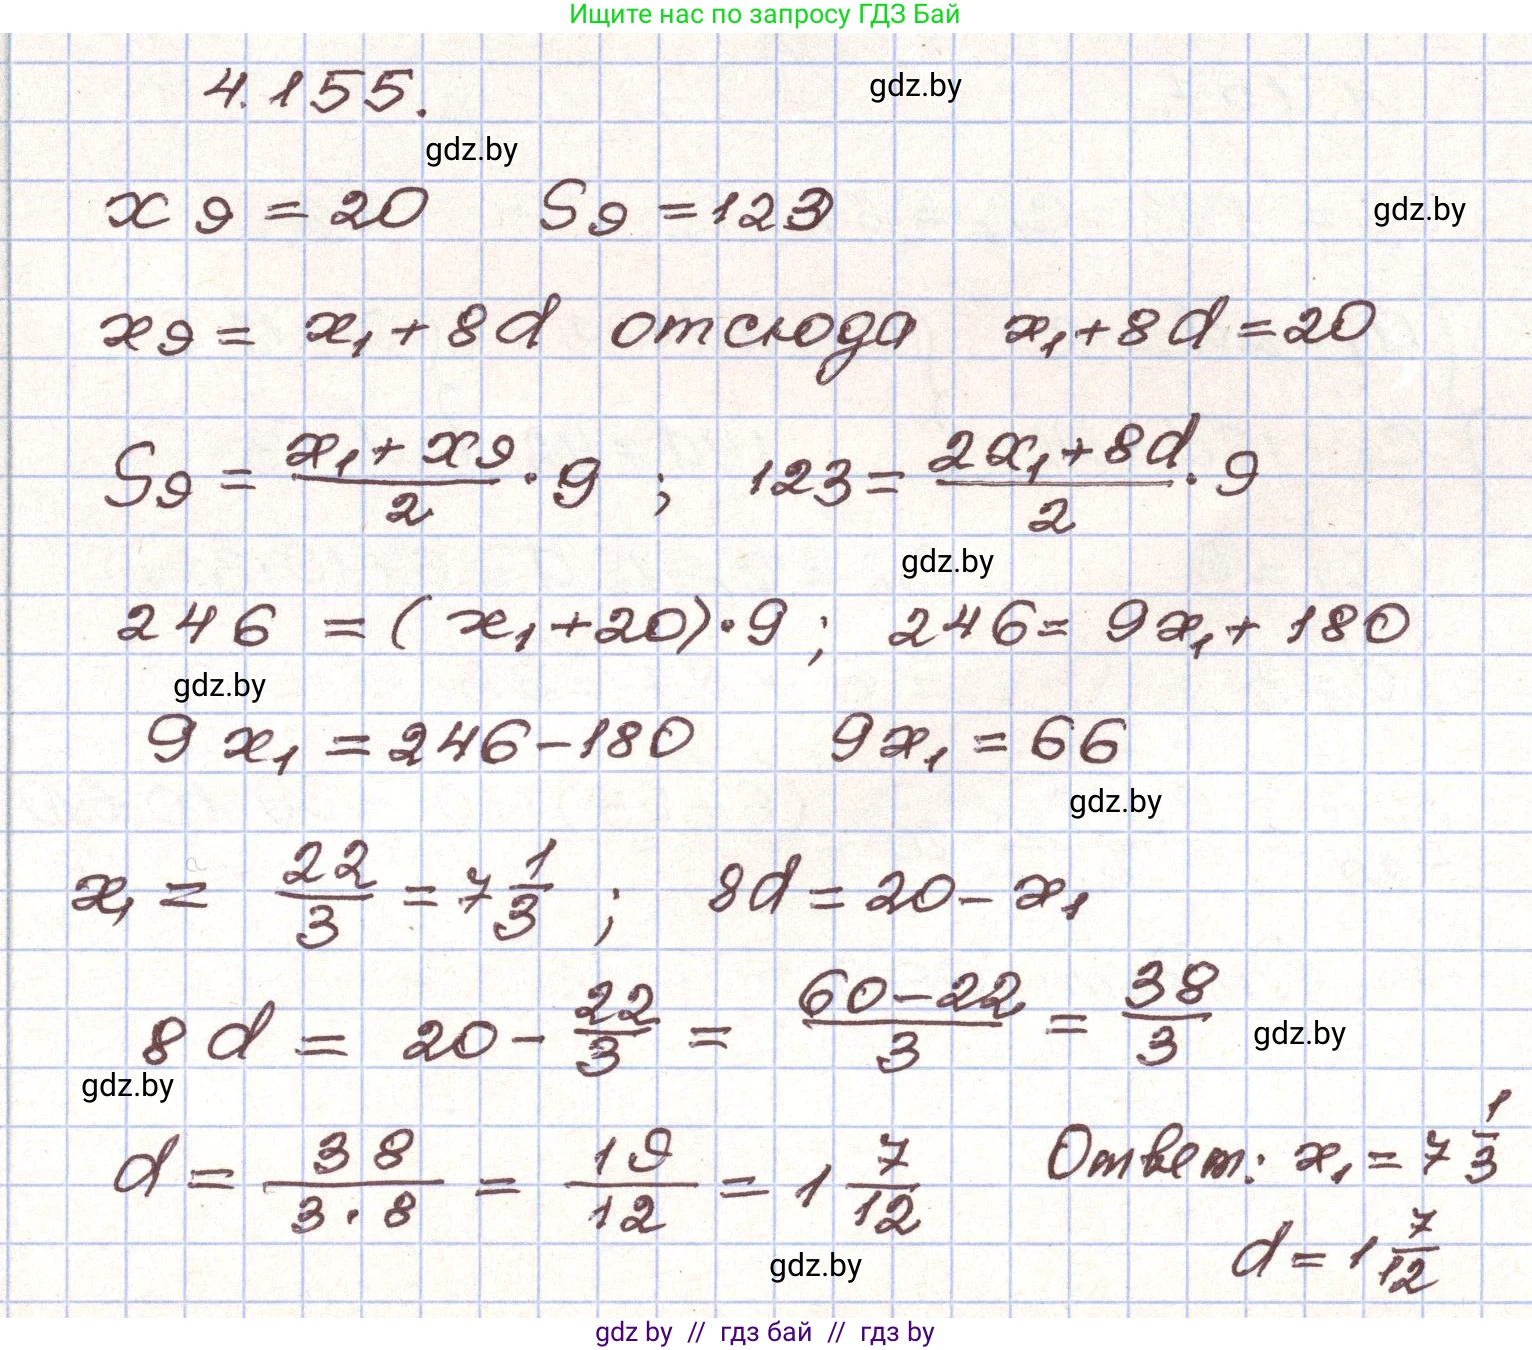 Ищите нас по запросу ГДЗ Бай
4.155.
gdz.by
gdz.by
x₉ = 20 S₉ = 123
gdz.by
x₉ = x₁ + 8d отсюда x₁ + 8d = 20
S₉ = (x₁ + x₉)/2 · 9 ; 123 = (2x₁ + 8d)/2 · 9
gdz.by
246 = (x₁ + 20) · 9 ; 246 = 9x₁ + 180
gdz.by
9x₁ = 246 – 180 9x₁ = 66
gdz.by
x₁ = 22/3 = 7 1/3 ; 8d = 20 – x₁
8d = 20 – 22/3 = (60 – 22)/3 = 38/3
gdz.by
gdz.by
d = 38/(3 · 8) = 19/12 = 1 7/12 Ответ: x₁ = 7 1/3
d = 1 7/12
gdz.by
gdz by // гдз бай // гдз by